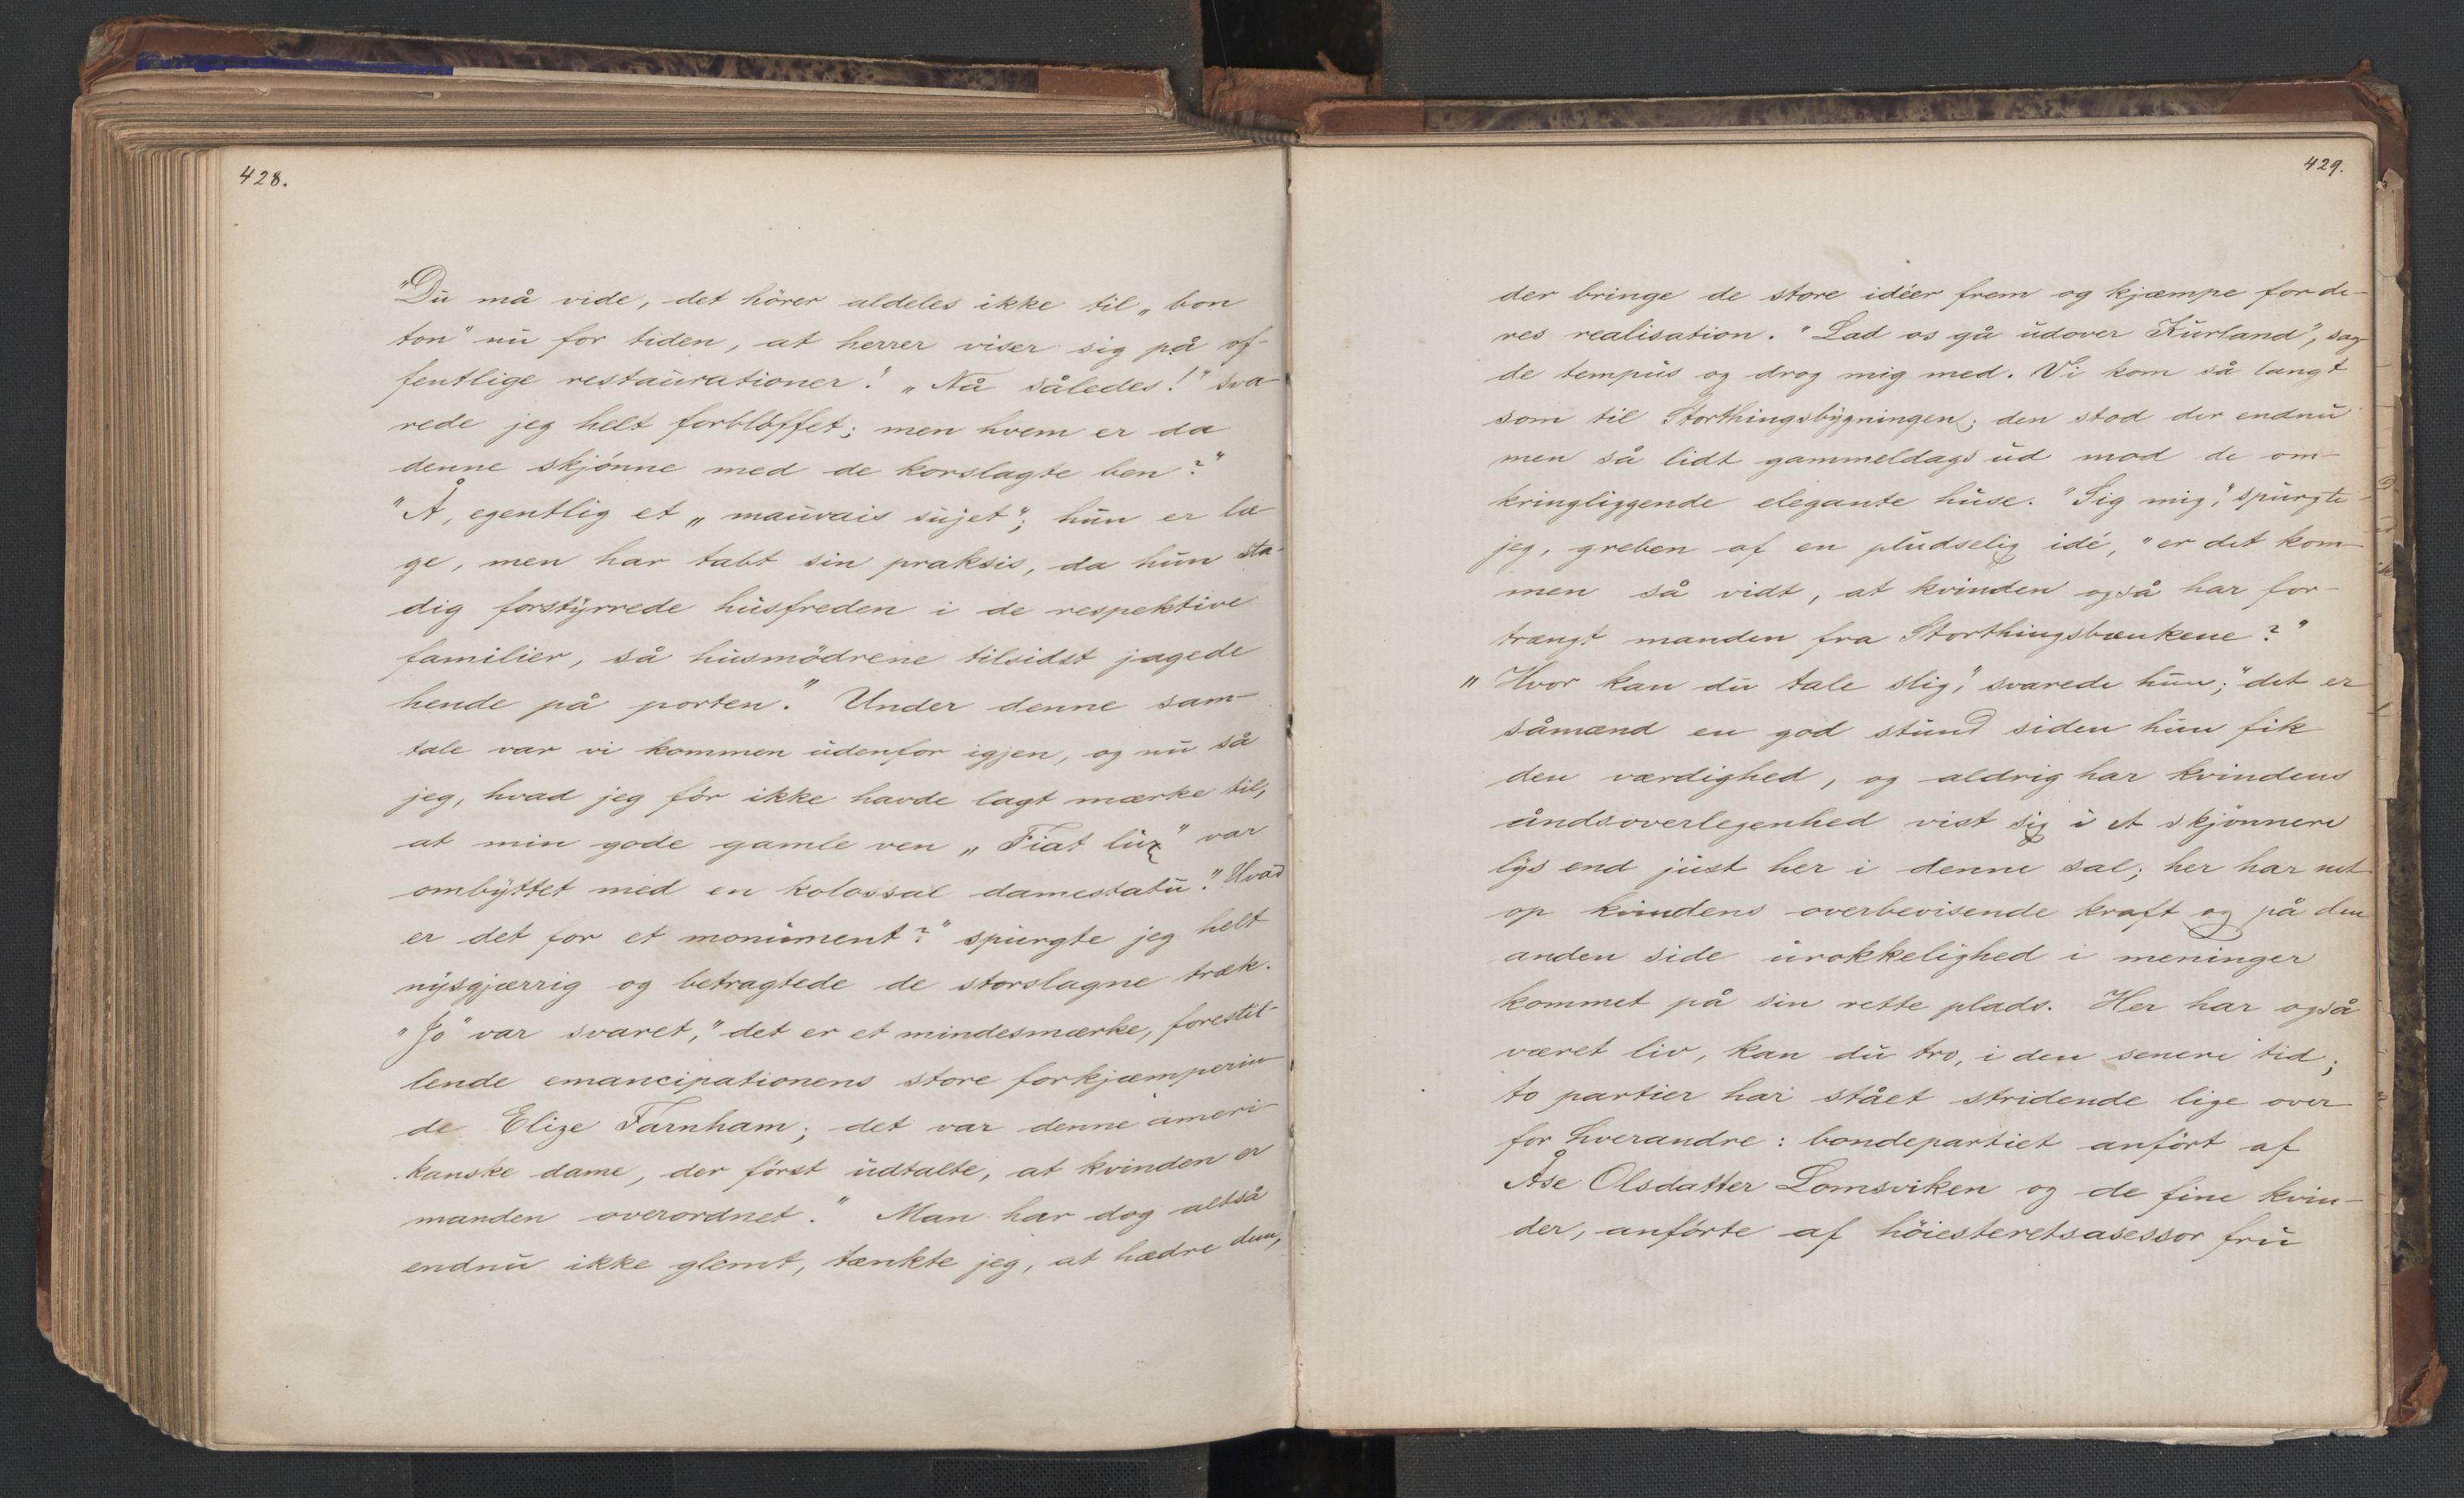 428.
"Du må vide, det hører aldeles ikke til „bon
ton" nu for tiden, at herrer viser sig på of-
fentlige restaurationer." „Nå således!" sva-
rede jeg helt forbløffet; men hvem er da
denne skjønne med de korslagte ben?"
"Å, egentlig et „mauvais sujet"; hun er læ-
ge, men har tabt sin praksis, da hun sta-
dig forstyrrede husfreden i de respektive
familier, så husmødrene tilsidst jagede
hende på porten." Under denne sam-
tale var vi kommen udenfor igjen, og nu så
jeg, hvad jeg før ikke havde lagt mærke til,
at min gode gamle ven „Fiat lux" var
ombyttet med en kolossal damestatu. "Hvad
er det for et monument?" spurgte jeg helt
nysgjærrig og betragtede de storslagne træk.
"Jo" var svaret, "det er et mindesmærke, forestil-
lende emancipationens store forkjæmperin-
de Elize Farnham; det var denne ameri-
kanske dame, der først udtalte, at kvinden er
manden overordnet." Man har dog altså
endnu ikke glemt, tænkte jeg, at hædre dem,
429.
der bringe de store idéer frem og kjæmpe for de-
res realisation. "Lad os gå udover Kurland", sag-
de tempus og drog mig med. Vi kom så langt
som til Storthingsbygningen; den stod der endnu
men så lidt gammeldags ud mod de om-
kringliggende elegante huse. "Sig mig," spurgte
jeg, greben af en pludselig idé, "er det kom-
men så vidt, at kvinden også har for-
trængt manden fra Storthingsbænkene?"
"Hvor kan du tale slig," svarede hun; "det er
såmænd en god stund siden hun fik
den værdighed, og aldrig har kvindens
åndsoverlegenhed vist sig i et skjønnere
lys end just her i denne sal; her har net-
op kvindens overbevisende kraft og på den
anden side urokkelighed i meninger
kommet på sin rette plads. Her har også
været liv, kan du tro, i den senere tid;
to partier har stået stridende lige over-
for hverandre: bondepartiet anført af
Åse Olsdatter Lomsviken og de fine kvin-
der, anførte af høiesteretsasessor fru